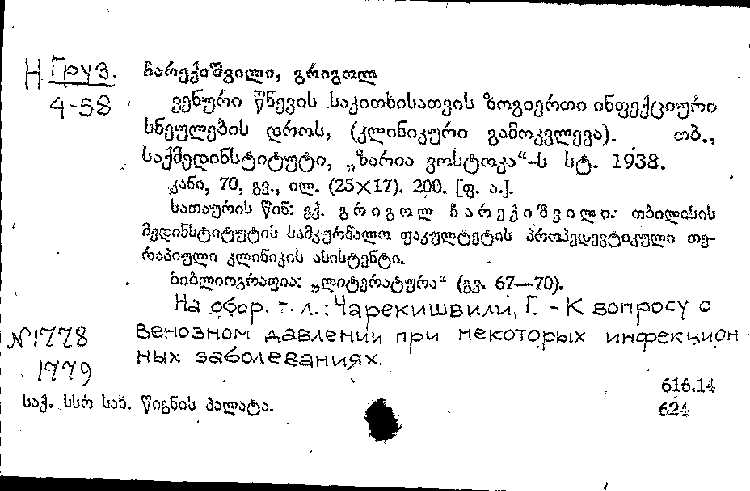 Н Груз.
4-58
ჩარეკიშვილი, გრიგოლ
ვენური წნევის საკითხისათვის ზოგიერთი ინფექციური
სნეულების დროს, (კლინიკური გამოკვლევა). თბ.,
საქმედინსტიტუტი, „ზარია ვოსტოკა“-ს სტ. 1938.
კანი, 70, გვ., ილ. (25×17). 200. [ფ. ა.].
სათაურის წინ: ექ. გრიგოლ ჩარეკიშვილი: თბილისის
მედინსტიტუტის სამკურნალო ფაკულტეტის პროპედევტიკული თე-
რაპიული კლინიკის ასისტენტი.
ბიბლიოგრაფია: „ლიტერატურა“ (გვ. 67—70).
На обор. т. л.: Чарекишвили, Г. - К вопросу о
венозном давлении при некоторых инфекцион
ных заболеваниях.
№1778
1779
616.14
624
საქ. სსრ სახ. წიგნის პალატა.